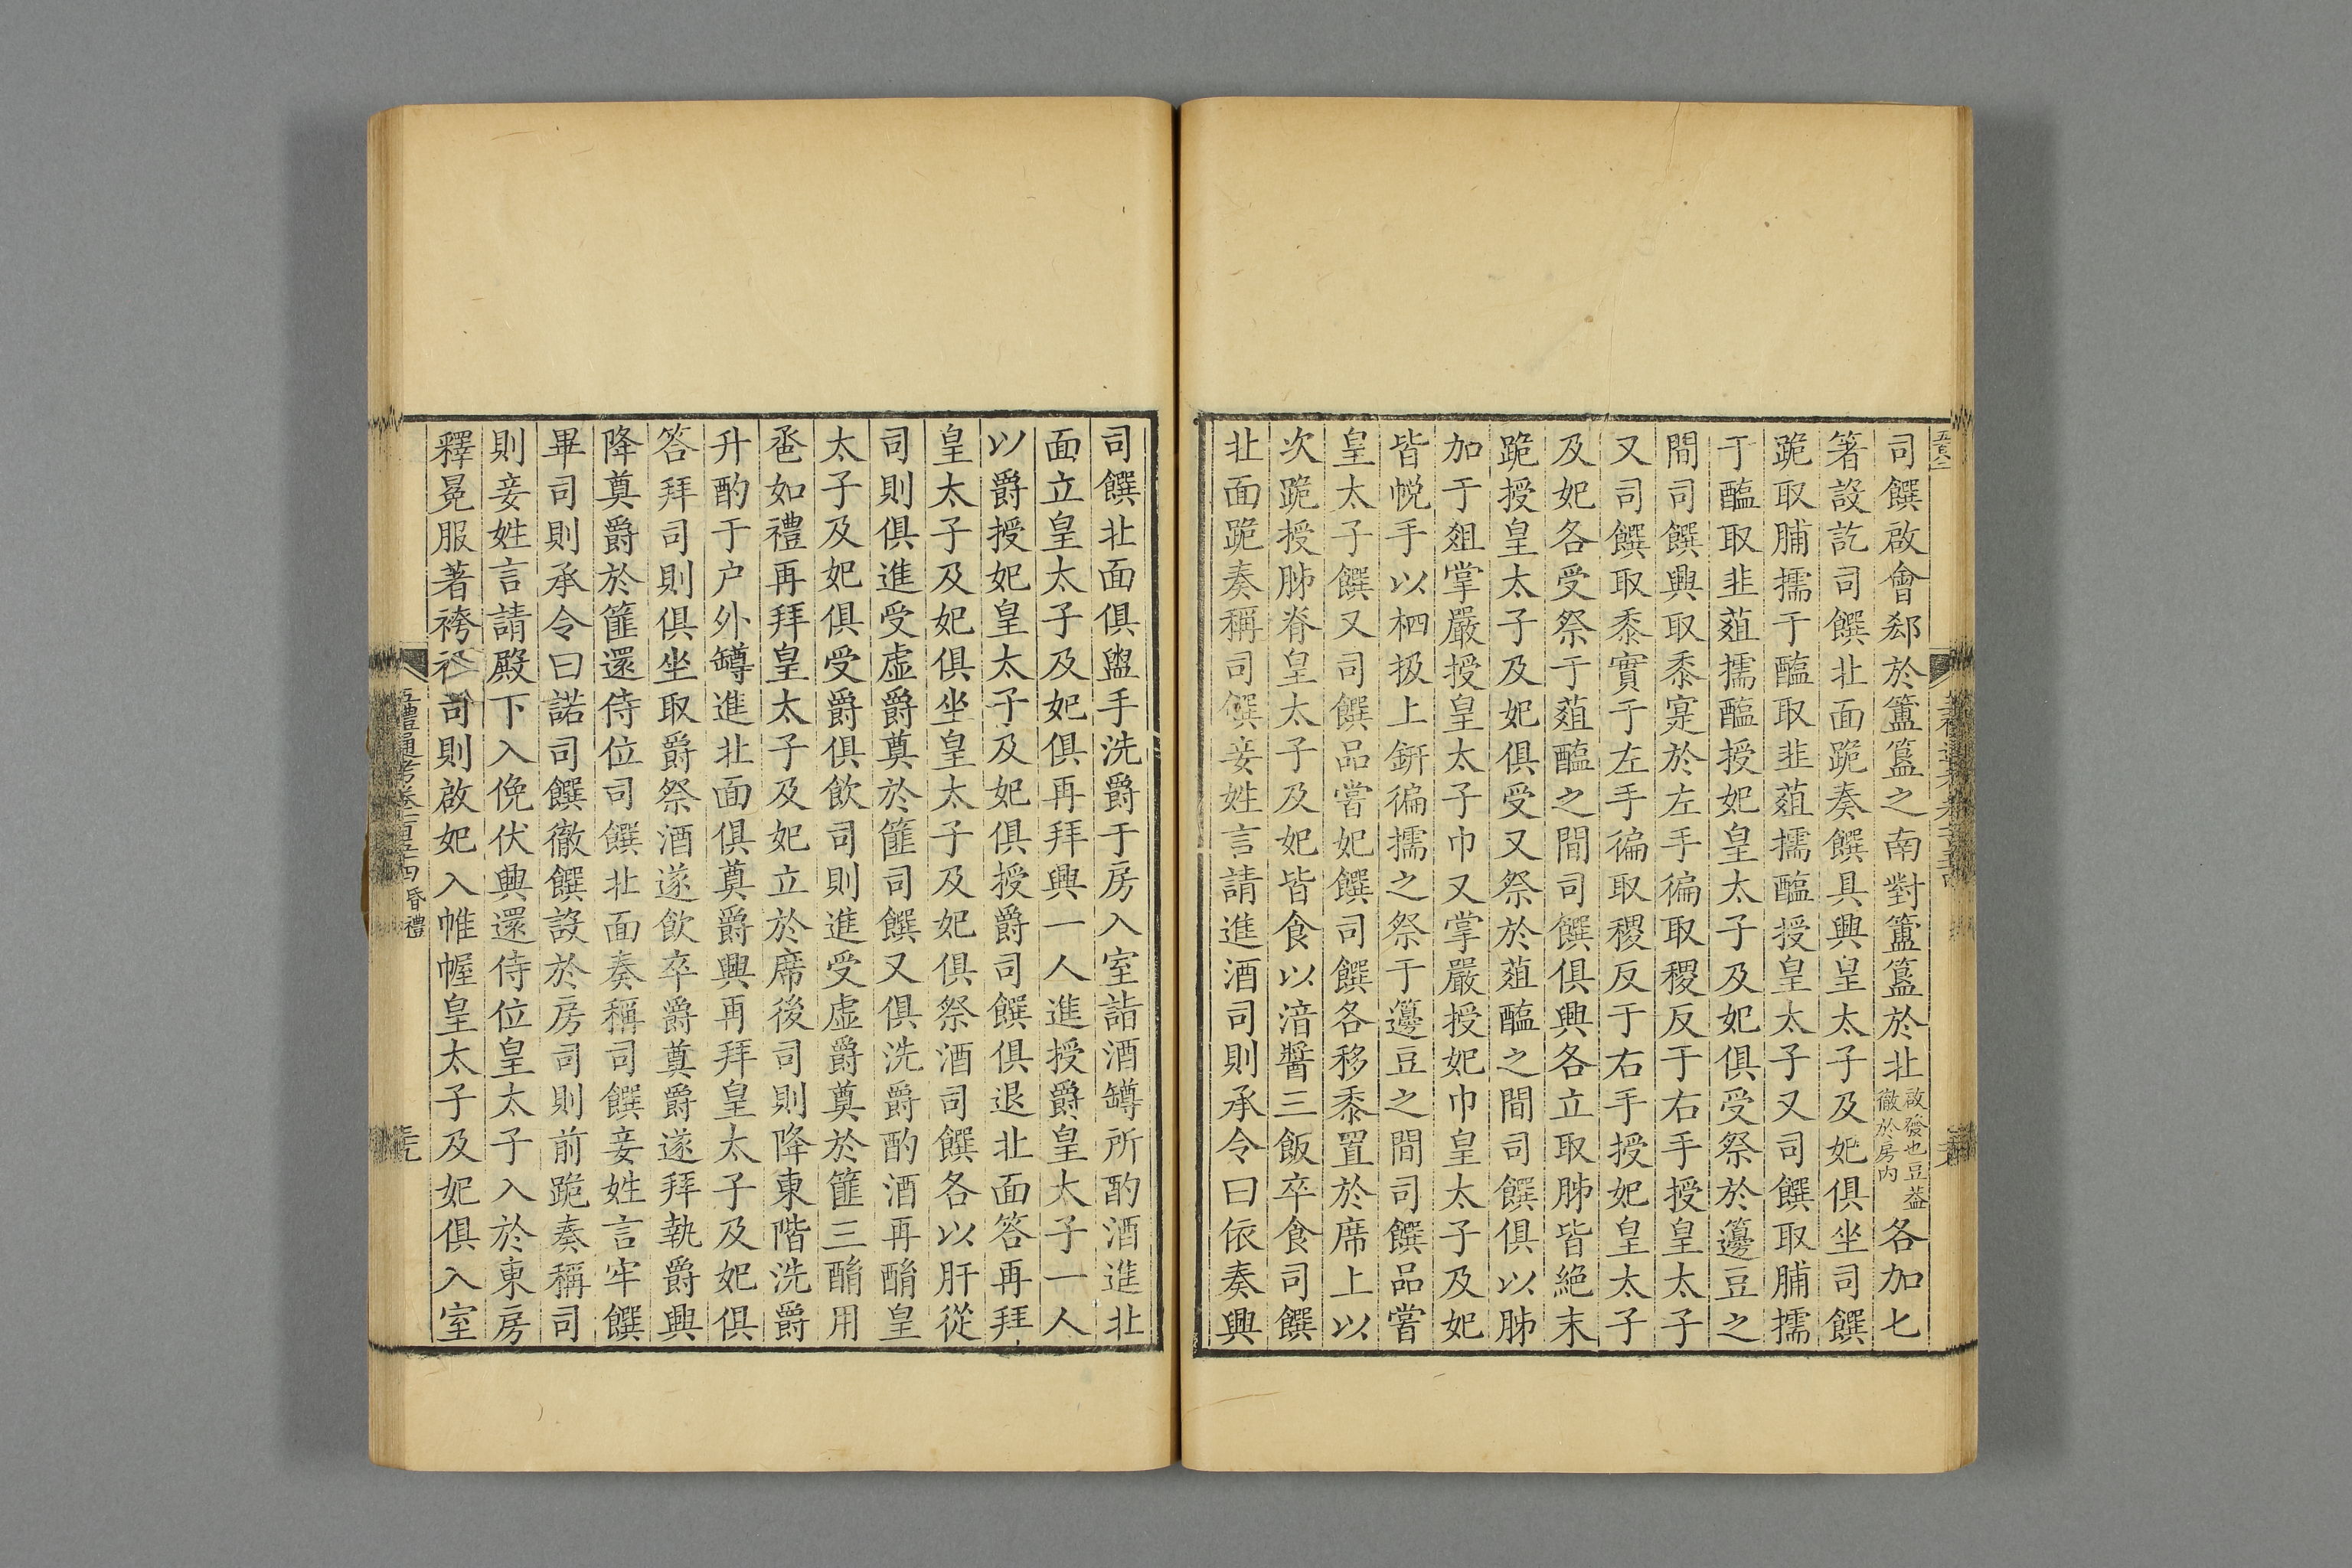 司饌啟會郄於簠簋之南對簠簋於北啟發也豆蓋徹於房內各加七
箸設訖司饌北面跪奏饌具興皇太子及妃俱坐司饌
跪取脯擩于醢取韭菹擩醢授皇太子又司饌取脯擩
于醢取韭菹擩醢授妃皇太子及妃俱受祭於籩豆之
間司饌興取黍寔於左手徧取稷反于右手授皇太子
又司饌取黍實于左手徧取稷反于右手授妃皇太子
及妃各受祭于菹醢之間司饌俱興各立取肺皆絕末
跪授皇太子及妃俱受又祭於菹醢之間司饌俱以肺
加于俎掌嚴授皇太子巾又掌嚴授妃巾皇太子及妃
皆帨手以柶扱上鈃徧擩之祭于籩豆之間司饌品嘗
皇太子饌又司饌品嘗妃饌司饌各移黍置於席上以
次跪授肺脊皇太子及妃皆食以湆醬三飯卒食司饌
北面跪奏稱司饌妾姓言請進酒司則承令曰依奏興
司饌北面俱盥手洗爵于房入室詣酒罇所酌酒進北
面立皇太子及妃俱再拜興一人進授爵皇太子一人
以爵授妃皇太子及妃俱授爵司饌俱退北面答再拜
皇太子及妃俱坐皇太子及妃俱祭酒司饌各以肝從
司則俱進受虛爵奠於篚司饌又俱洗爵酌酒再酳皇
太子及妃俱受爵俱飲司則進受虛爵奠於篚三酳用
巹如禮再拜皇太子及妃立於席後司則降東階洗爵
升酌于户外罇進北面俱奠爵興再拜皇太子及妃俱
答拜司則俱坐取爵祭酒遂飲卒爵奠爵遂拜執爵興
降奠爵於篚還侍位司饌北面奏稱司饌妾姓言牢饌
畢司則承令曰諾司饌徹饌設於房司則前跪奏稱司
則妾姓言請殿下入俛伏興還侍位皇太子入於東房
釋冕服著袴褶司則啟妃入帷幄皇太子及妃俱入室
五禮通考卷一百五十四 昏禮